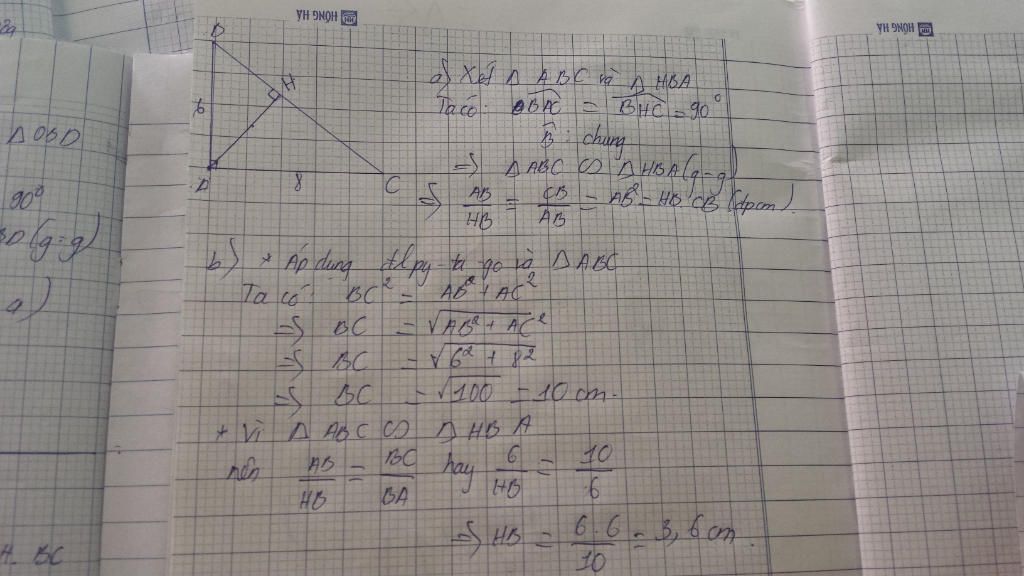 HỒNG HÀ
HỒNG HÀ
B
H
6
A
8
C
a) Xét Δ ABC và Δ HBA
Ta có: BAC = BHC = 90°
B : chung
=> Δ ABC ∽ Δ HBA (g-g)
=> AB/HB = CB/AB = AB² = HB CB (đpcm).
b) * Áp dụng đl py-ta-go và Δ ABC
Ta có: BC² = AB² + AC²
=> BC = √AB² + AC²
=> BC = √6² + 8²
=> BC = √100 = 10 cm.
+ Vì Δ ABC ∽ Δ HBA
nên AB/HB = BC/BA hay 6/HB = 10/6
=> HB = 6.6/10 = 3,6 cm.
Δ OBD
90°
BD (g-g)
a)
H. BC